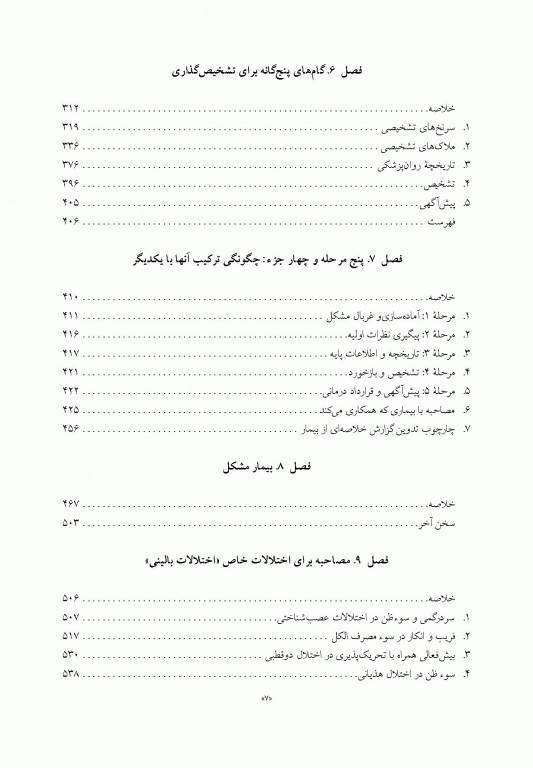 فصل ۶. گام‌های پنج‌گانه برای تشخیص‌گذاری
خلاصه ........ ۳۱۲
۱. سرنخ‌های تشخیصی ........ ۳۱۹
۲. ملاک‌های تشخیصی ........ ۳۳۶
۳. تاریخچهٔ روان‌پزشکی ........ ۳۷۶
۴. تشخیص ........ ۳۹۶
۵. پیش‌آگهی ........ ۴۰۵
فهرست ........ ۴۰۶
فصل ۷. پنج مرحله و چهار جزء: چگونگی ترکیب آنها با یکدیگر
خلاصه ........ ۴۱۰
۱. مرحلهٔ ۱: آماده‌سازی و غربال مشکل ........ ۴۱۱
۲. مرحلهٔ ۲: پیگیری نظرات اولیه ........ ۴۱۶
۳. مرحلهٔ ۳: تاریخچه و اطلاعات پایه ........ ۴۱۷
۴. مرحلهٔ ۴: تشخیص و بازخورد ........ ۴۲۱
۵. مرحلهٔ ۵: پیش‌آگهی و قرارداد درمانی ........ ۴۲۲
۶. مصاحبه با بیماری که همکاری می‌کند ........ ۴۲۵
۷. چارچوب تدوین گزارش خلاصه‌ای از بیمار ........ ۴۵۶
فصل ۸. بیمار مشکل
خلاصه ........ ۴۶۷
سخن آخر ........ ۵۰۳
فصل ۹. مصاحبه برای اختلالات خاص «اختلالات بالینی»
خلاصه ........ ۵۰۶
۱. سردرگمی و سوءظن در اختلالات عصب‌شناختی ........ ۵۰۷
۲. فریب و انکار در سوء مصرف الکل ........ ۵۱۷
۳. بیش‌فعالی همراه با تحریک‌پذیری در اختلال دوقطبی ........ ۵۳۰
۴. سوء ظن در اختلال هذیانی ........ ۵۳۸
«۷»